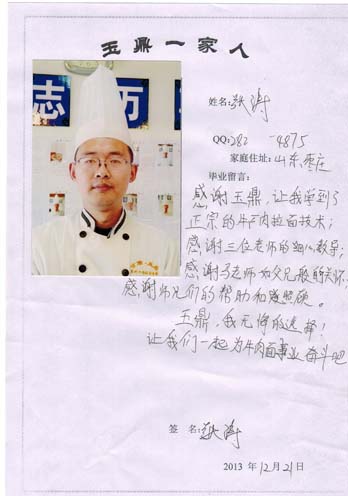 玉鼎一家人
志 历
姓名:张涛
QQ:282 4875
家庭住址:山东枣庄
毕业留言:
感谢玉鼎,让我学到了
正宗的牛肉拉面技术;
感谢三位老师的细心教导;
感谢了老师如父兄般的关怀;
感谢师兄们的帮助和照顾。
玉鼎,我无悔的选择!
让我们一起为牛肉面事业奋斗吧
签 名:张涛
2013 年12月21日